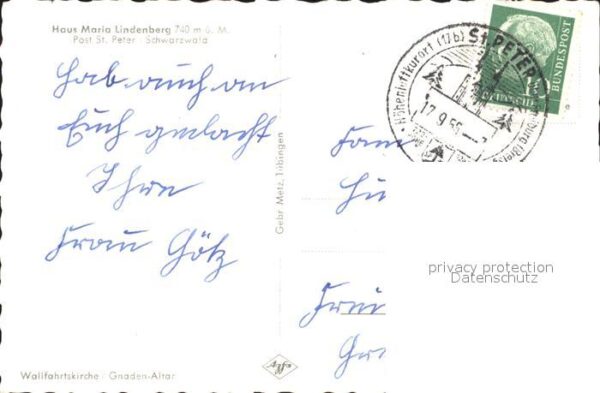 Haus Maria Lindenberg 740 m ü. M.
Post St. Peter - Schwarzwald
Hab auch an
Euch gedacht
Ihre
Frau Götz
Wallfahrtskirche - Gnaden-Altar
Gebr. Metz, Tübingen
Agfa
Höhenluftkurort (17b) ST. PETER
17.9.56
DEUTSCHE
BUNDESPOST
Fam
privacy protection
Datenschutz